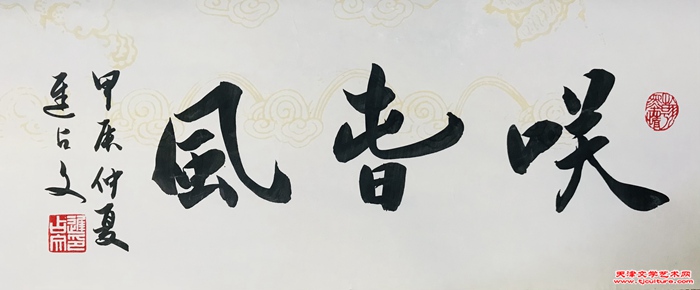 咲旾風
甲辰仲夏
占文
天津文学艺术网
www.tjculture.com